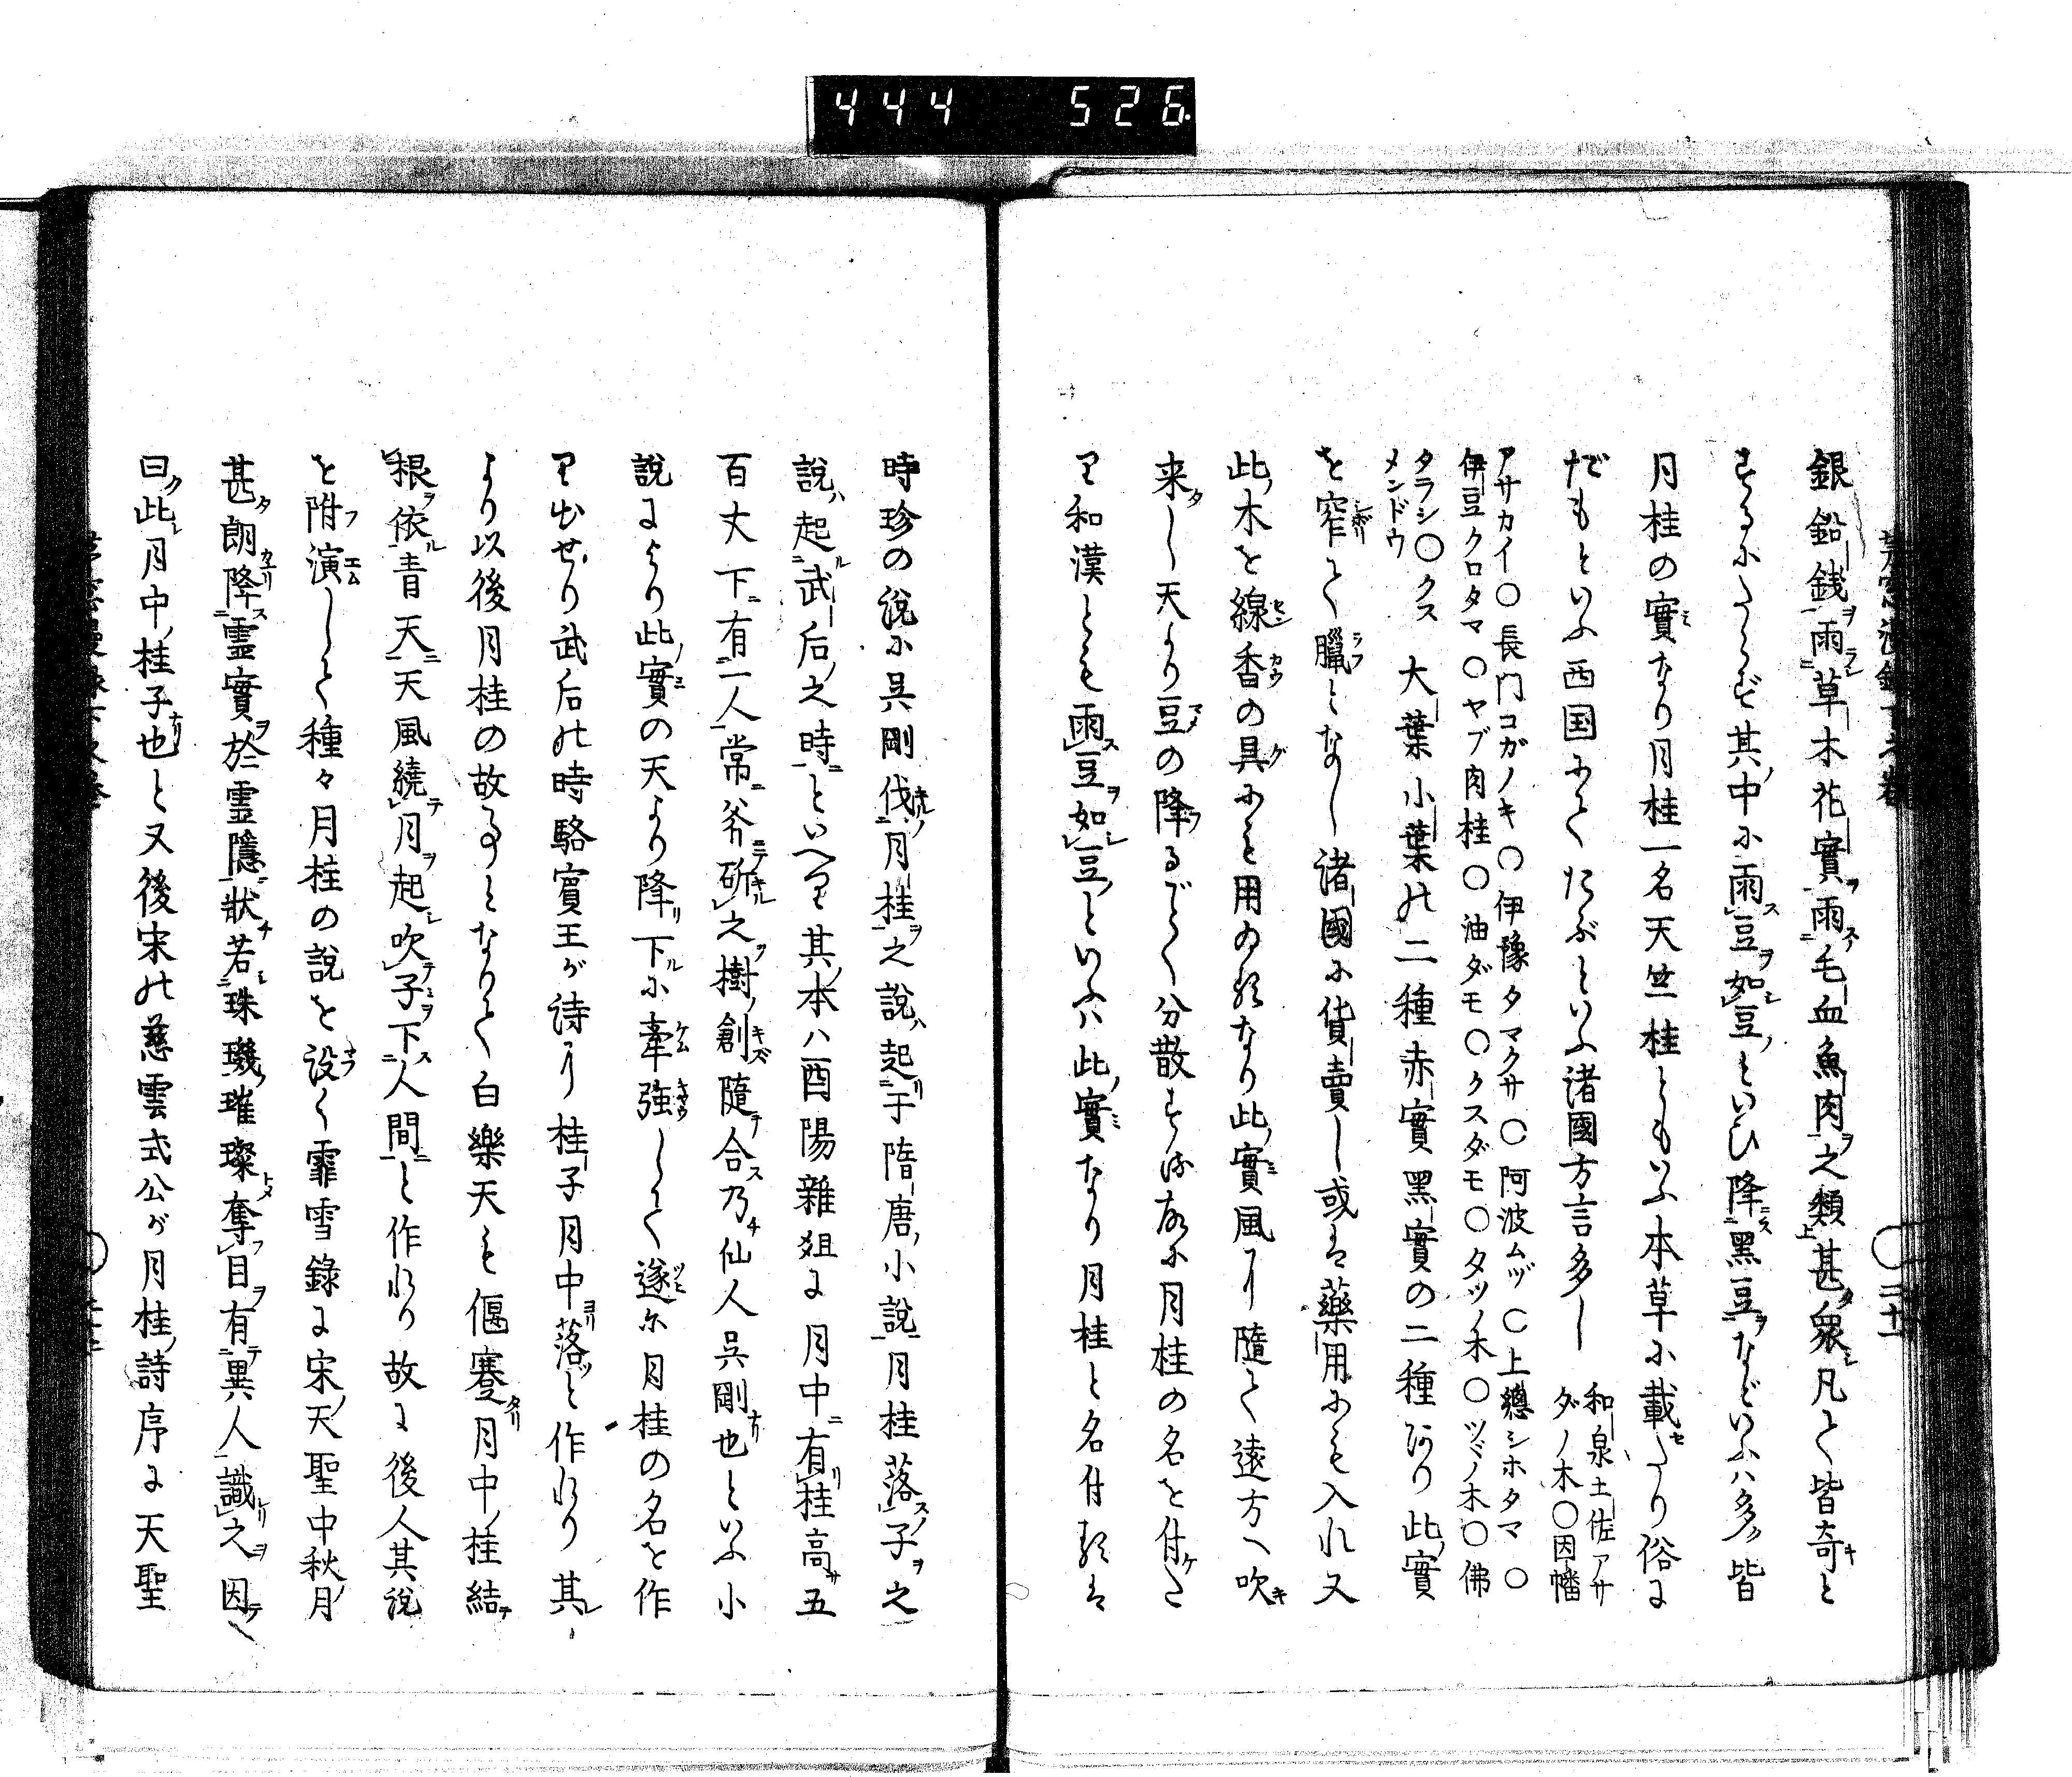 444 526
銀鉛銭雨草木花實雨毛血魚肉之類甚衆凡て皆奇と
するにたらず其中に雨豆如豆といひ降黒豆などいふハ多皆
月桂の實なり月桂一名天竺桂ともいふ本草に載たり俗に
だもといふ西国にてたぶといふ諸國方言多し
和泉土佐アサ
ダノ木○因幡
アサカイ○長門コガノキ○伊豫タマクサ○阿波ムツ○上總シホタマ○
伊豆クロタマ○ヤブ肉桂○油ダモ○クスダモ○タツノ木○ツミノ木○佛
タラシ○クス
メンドウ
大葉小葉の二種赤實黒實の二種あり此實
を窄て臘となし諸國に貨賣し或は藥用にも入れ又
此木を線香の具にも用の類なり此實風に隨て遠方へ吹
来し天より豆の降るごとく分散する故に月桂の名を付た
り和漢とも雨豆如豆といふハ此實なり月桂と名付類は
時珍の説に呉剛伐月桂之説起于隋唐小説月桂落子之
説起武后之時といへり其本ハ酉陽雜俎に月中有桂高五
百丈下有一人常斧斫之樹創隨合乃仙人呉剛也といふ小
説により此實の天より降下に牽強して遂に月桂の名を作
り出せり武后の時駱賓王が詩に桂子月中落と作れり其
より以後月桂の故事となりて白樂天も偃蹇月中桂結
根依青天天風繞月起吹子下人間と作れり故に後人其説
を附演して種々月桂の説を設く霏雪錄に宋天聖中秋月
甚朗降霊實於霊隱狀若珠璣璀璨奪目有異人識之因
曰此月中桂子也と又後宋の慈雲式公が月桂詩序に天聖